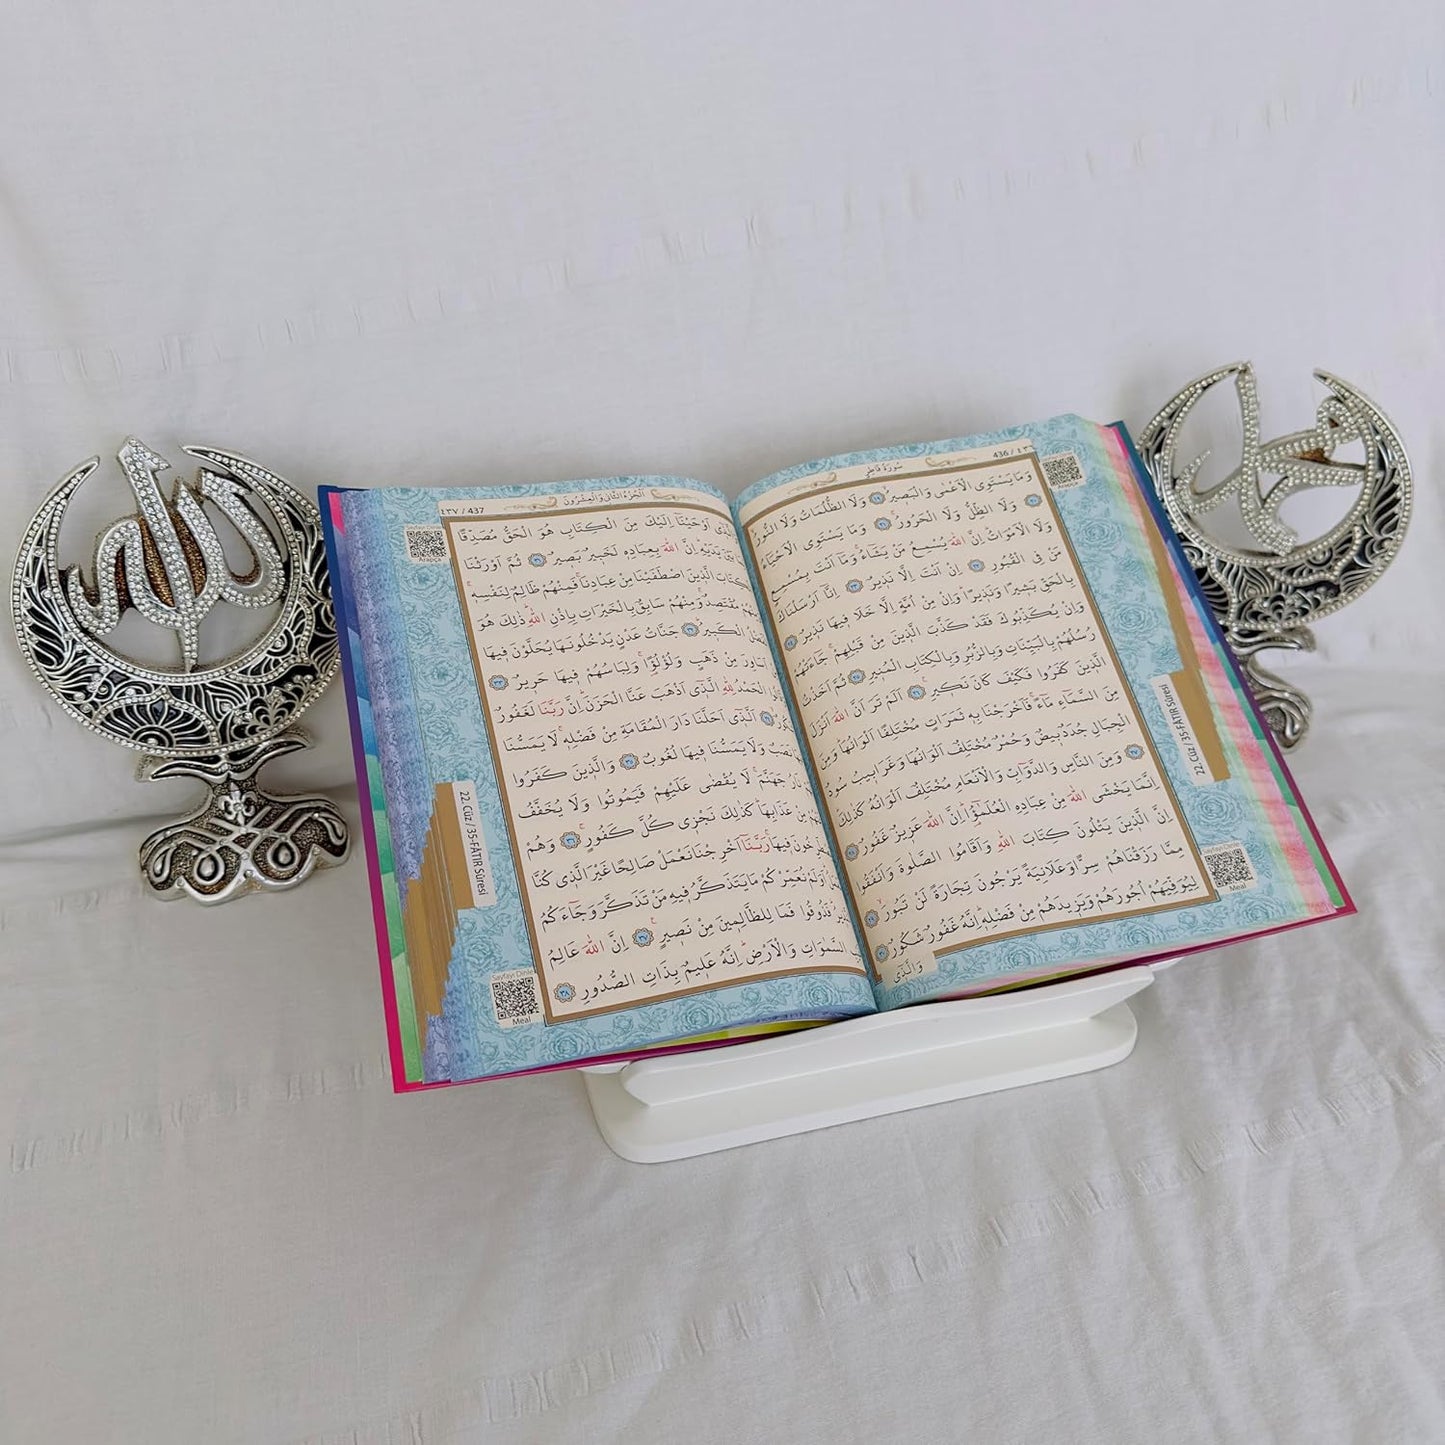 سُورَةُ فَاطِرٍ
436 / ٤٣٦
وَمَا يَسْتَوِى الْاَعْمٰى وَالْبَصٖيرُ ﴿١٩﴾ وَلَا الظُّلُمَاتُ وَلَا النُّورُ
﴿٢٠﴾ وَلَا الظِّلُّ وَلَا الْحَرُورُ ﴿٢١﴾ وَمَا يَسْتَوِى الْاَحْيَٓاءُ
وَلَا الْاَمْوَاتُ اِنَّ اللّٰهَ يُسْمِعُ مَنْ يَشَٓاءُ وَمَٓا اَنْتَ بِمُسْمِعٍ
مَنْ فِى الْقُبُورِ ﴿٢٢﴾ اِنْ اَنْتَ اِلَّا نَذٖيرٌ ﴿٢٣﴾ اِنَّٓا اَرْسَلْنَاكَ
بِالْحَقِّ بَشٖيرًا وَنَذٖيرًا وَاِنْ مِنْ اُمَّةٍ اِلَّا خَلَا فٖيهَا نَذٖيرٌ ﴿٢٤﴾
وَاِنْ يُكَذِّبُوكَ فَقَدْ كَذَّبَ الَّذٖينَ مِنْ قَبْلِهِمْ جَٓاءَتْهُمْ
رُسُلُهُمْ بِالْبَيِّنَاتِ وَبِالزُّبُرِ وَبِالْكِتَابِ الْمُنٖيرِ ﴿٢٥﴾ ثُمَّ اَخَذْتُ
الَّذٖينَ كَفَرُوا فَكَيْفَ كَانَ نَكٖيرِ ﴿٢٦﴾ اَلَمْ تَرَ اَنَّ اللّٰهَ اَنْزَلَ
مِنَ السَّمَٓاءِ مَٓاءً فَاَخْرَجْنَا بِهٖ ثَمَرَاتٍ مُخْتَلِفًا اَلْوَانُهَا وَمِنَ
الْجِبَالِ جُدَدٌ بٖيضٌ وَحُمْرٌ مُخْتَلِفٌ اَلْوَانُهَا وَغَرَابٖيبُ سُودٌ
﴿٢٧﴾ وَمِنَ النَّاسِ وَالدَّوَٓابِّ وَالْاَنْعَامِ مُخْتَلِفٌ اَلْوَانُهُ كَذٰلِكَ
اِنَّمَا يَخْشَى اللّٰهَ مِنْ عِبَادِهِ الْعُلَمٰٓؤُا اِنَّ اللّٰهَ عَزٖيزٌ غَفُورٌ ﴿٢٨﴾
اِنَّ الَّذٖينَ يَتْلُونَ كِتَابَ اللّٰهِ وَاَقَامُوا الصَّلٰوةَ وَاَنْفَقُوا
مِمَّا رَزَقْنَاهُمْ سِرًّا وَعَلَانِيَةً يَرْجُونَ تِجَارَةً لَنْ تَبُورَ ﴿٢٩﴾
لِيُوَفِّيَهُمْ اُجُورَهُمْ وَيَزٖيدَهُمْ مِنْ فَضْلِهٖ اِنَّهُ غَفُورٌ شَكُورٌ ﴿٣٠﴾
وَالَّذٖٓى
22. Cüz / 35-FÂTIR Sûresi
Meal
اَلْجُزْءُ الثَّانٖى وَالْعِشْرُونَ
٤٣٧ / 437
اَوْحَيْنَٓا اِلَيْكَ مِنَ الْكِتَابِ هُوَ الْحَقُّ مُصَدِّقًا
يَدَيْهِ اِنَّ اللّٰهَ بِعِبَادِهٖ لَخَبٖيرٌ بَصٖيرٌ ﴿٣١﴾ ثُمَّ اَوْرَثْنَا
الَّذٖينَ اصْطَفَيْنَا مِنْ عِبَادِنَا فَمِنْهُمْ ظَالِمٌ لِنَفْسِهٖ
مُقْتَصِدٌ وَمِنْهُمْ سَابِقٌ بِالْخَيْرَاتِ بِاِذْنِ اللّٰهِ ذٰلِكَ هُوَ
الْكَبٖيرُ ﴿٣٢﴾ جَنَّاتُ عَدْنٍ يَدْخُلُونَهَا يُحَلَّوْنَ فٖيهَا
مِنْ ذَهَبٍ وَلُؤْلُؤًا وَلِبَاسُهُمْ فٖيهَا حَرٖيرٌ ﴿٣٣﴾
الْحَمْدُ لِلّٰهِ الَّذٖٓى اَذْهَبَ عَنَّا الْحَزَنَ اِنَّ رَبَّنَا لَغَفُورٌ
﴿٣٤﴾ اَلَّذٖٓى اَحَلَّنَا دَارَ الْمُقَامَةِ مِنْ فَضْلِهٖ لَا يَمَسُّنَا
نَصَبٌ وَلَا يَمَسُّنَا فٖيهَا لُغُوبٌ ﴿٣٥﴾ وَالَّذٖينَ كَفَرُوا
نَارُ جَهَنَّمَ لَا يُقْضٰى عَلَيْهِمْ فَيَمُوتُوا وَلَا يُخَفَّفُ
مِنْ عَذَابِهَا كَذٰلِكَ نَجْزٖى كُلَّ كَفُورٍ ﴿٣٦﴾ وَهُمْ
فٖيهَا رَبَّنَٓا اَخْرِجْنَا نَعْمَلْ صَالِحًا غَيْرَ الَّذٖى كُنَّا
اَوَلَمْ نُعَمِّرْكُمْ مَا يَتَذَكَّرُ فٖيهِ مَنْ تَذَكَّرَ وَجَٓاءَكُمُ
فَذُوقُوا فَمَا لِلظَّالِمٖينَ مِنْ نَصٖيرٍ ﴿٣٧﴾ اِنَّ اللّٰهَ عَالِمُ
السَّمٰوَاتِ وَالْاَرْضِ اِنَّهُ عَلٖيمٌ بِذَاتِ الصُّدُورِ ﴿٣٨﴾
Arapça
22. Cüz / 35-FÂTIR Sûresi
Sayfayı Dinle
Meal
الله
محمد